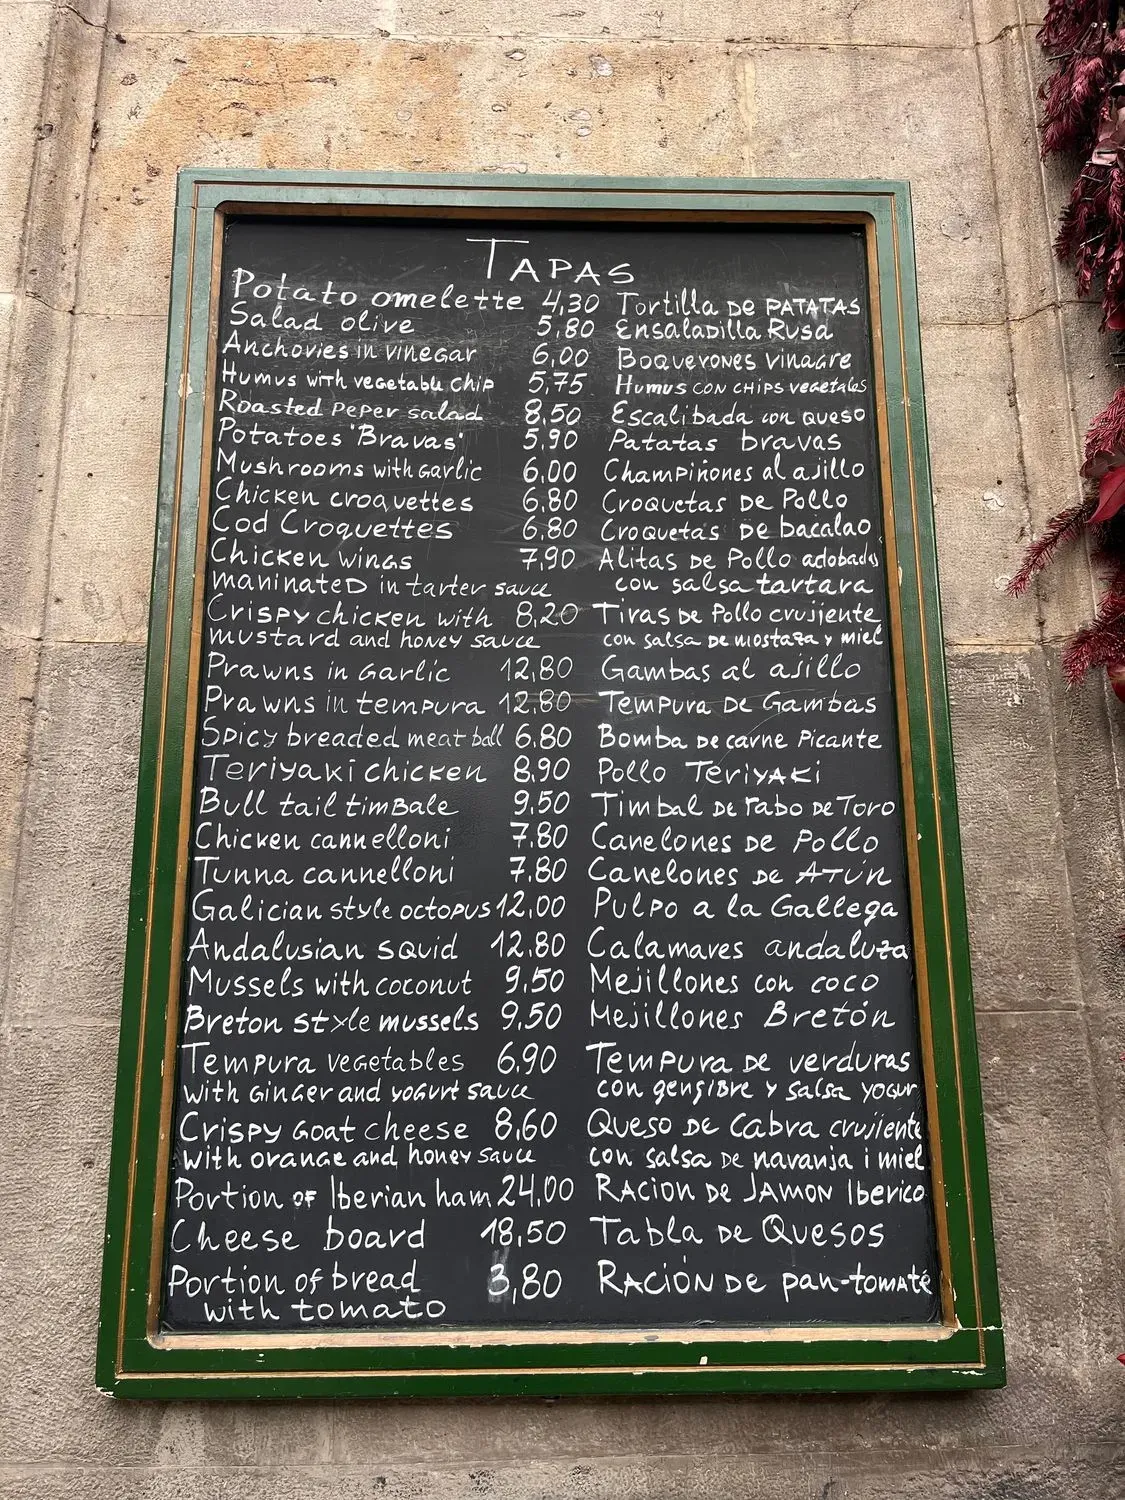 TAPAS
Potato omelette 4,30 Tortilla DE PATATAS
Salad olive 5,80 Ensaladilla Rusa
Anchovies in vinegar 6,00 Boquerones vinagre
Humus with vegetable chip 5,75 Humus con chips vegetales
Roasted peper salad 8,50 Escalibada con queso
Potatoes 'Bravas' 5,90 Patatas bravas
Mushrooms with garlic 6,00 Champiñones al ajillo
Chicken croquettes 6,80 Croquetas de Pollo
Cod Croquettes 6,80 Croquetas de bacalao
Chicken wings 7,90 Alitas de Pollo adobadas
maninated in tarter sauce con salsa tartara
Crispy chicken with 8,20 Tiras de Pollo crujiente
mustard and honey sauce con salsa de mostaza y miel
Prawns in garlic 12,80 Gambas al ajillo
Prawns in tempura 12,80 Tempura de Gambas
Spicy breaded meat ball 6,80 Bomba de carne Picante
Teriyaki chicken 8,90 Pollo Teriyaki
Bull tail timbale 9,50 Timbal de rabo de Toro
Chicken cannelloni 7,80 Canelones de Pollo
Tunna cannelloni 7,80 Canelones de Atún
Galician style octopus 12,00 Pulpo a la Gallega
Andalusian squid 12,80 Calamares andaluza
Mussels with coconut 9,50 Mejillones con coco
Breton style mussels 9,50 Mejillones Bretón
Tempura vegetables 6,90 Tempura de verduras
with ginger and yogurt sauce con gengibre y salsa yogur
Crispy goat cheese 8,60 Queso de Cabra crujiente
with orange and honey sauce con salsa de naranja i miel
Portion of Iberian ham 24,00 Racion de Jamon Iberico
Cheese board 18,50 Tabla de Quesos
Portion of bread 3,80 Ración de pan-tomate
with tomato